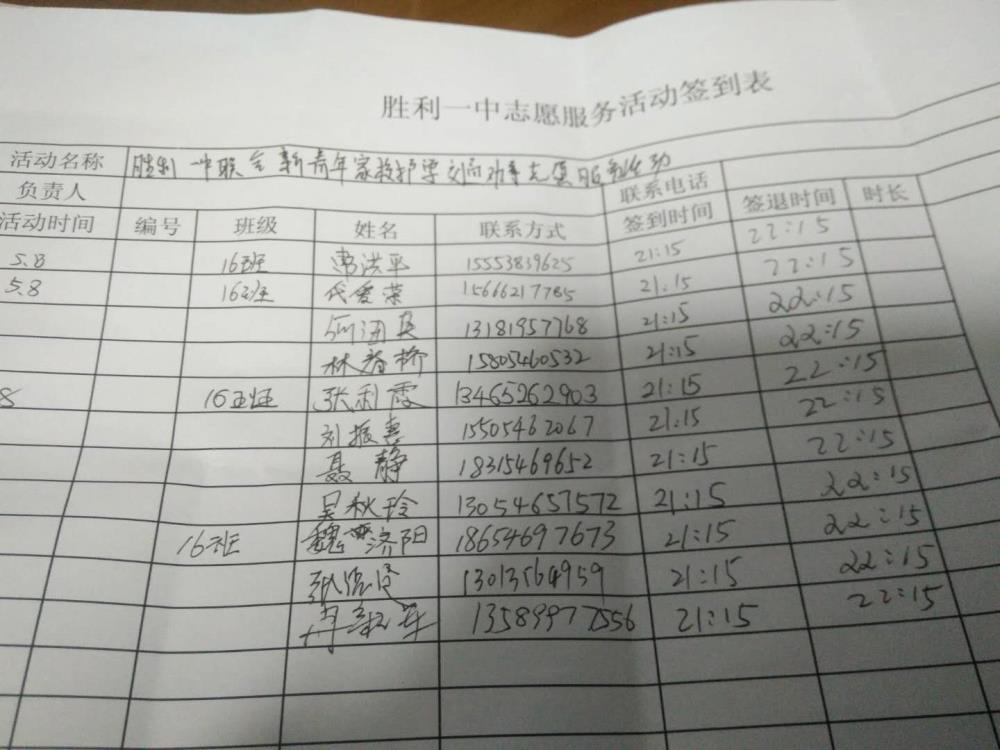 胜利一中志愿服务活动签到表
活动名称 胜利一中联合新青年家校护学 志愿服务活动
负责人 联系电话
活动时间 编号 班级 姓名 联系方式 签到时间 签退时间 时长
5.8 16班 洪平 15553839625 21:15 22:15
5.8 16班 代爱荣 15666217785 21:15 22:15
海英 13181957768 21:15 22:15
林春桥 15805460532 21:15 22:15
8 16班 张利霞 13465262903 21:15 22:15
刘振惠 15505462067 21:15 22:15
聂静 18315469652 21:15 22:15
吴秋玲 13054657572 21:15 22:15
16班 魏济阳 18654697673 21:15 22:15
张 13013564959 21:15 22:15
13589977556 21:15 22:15